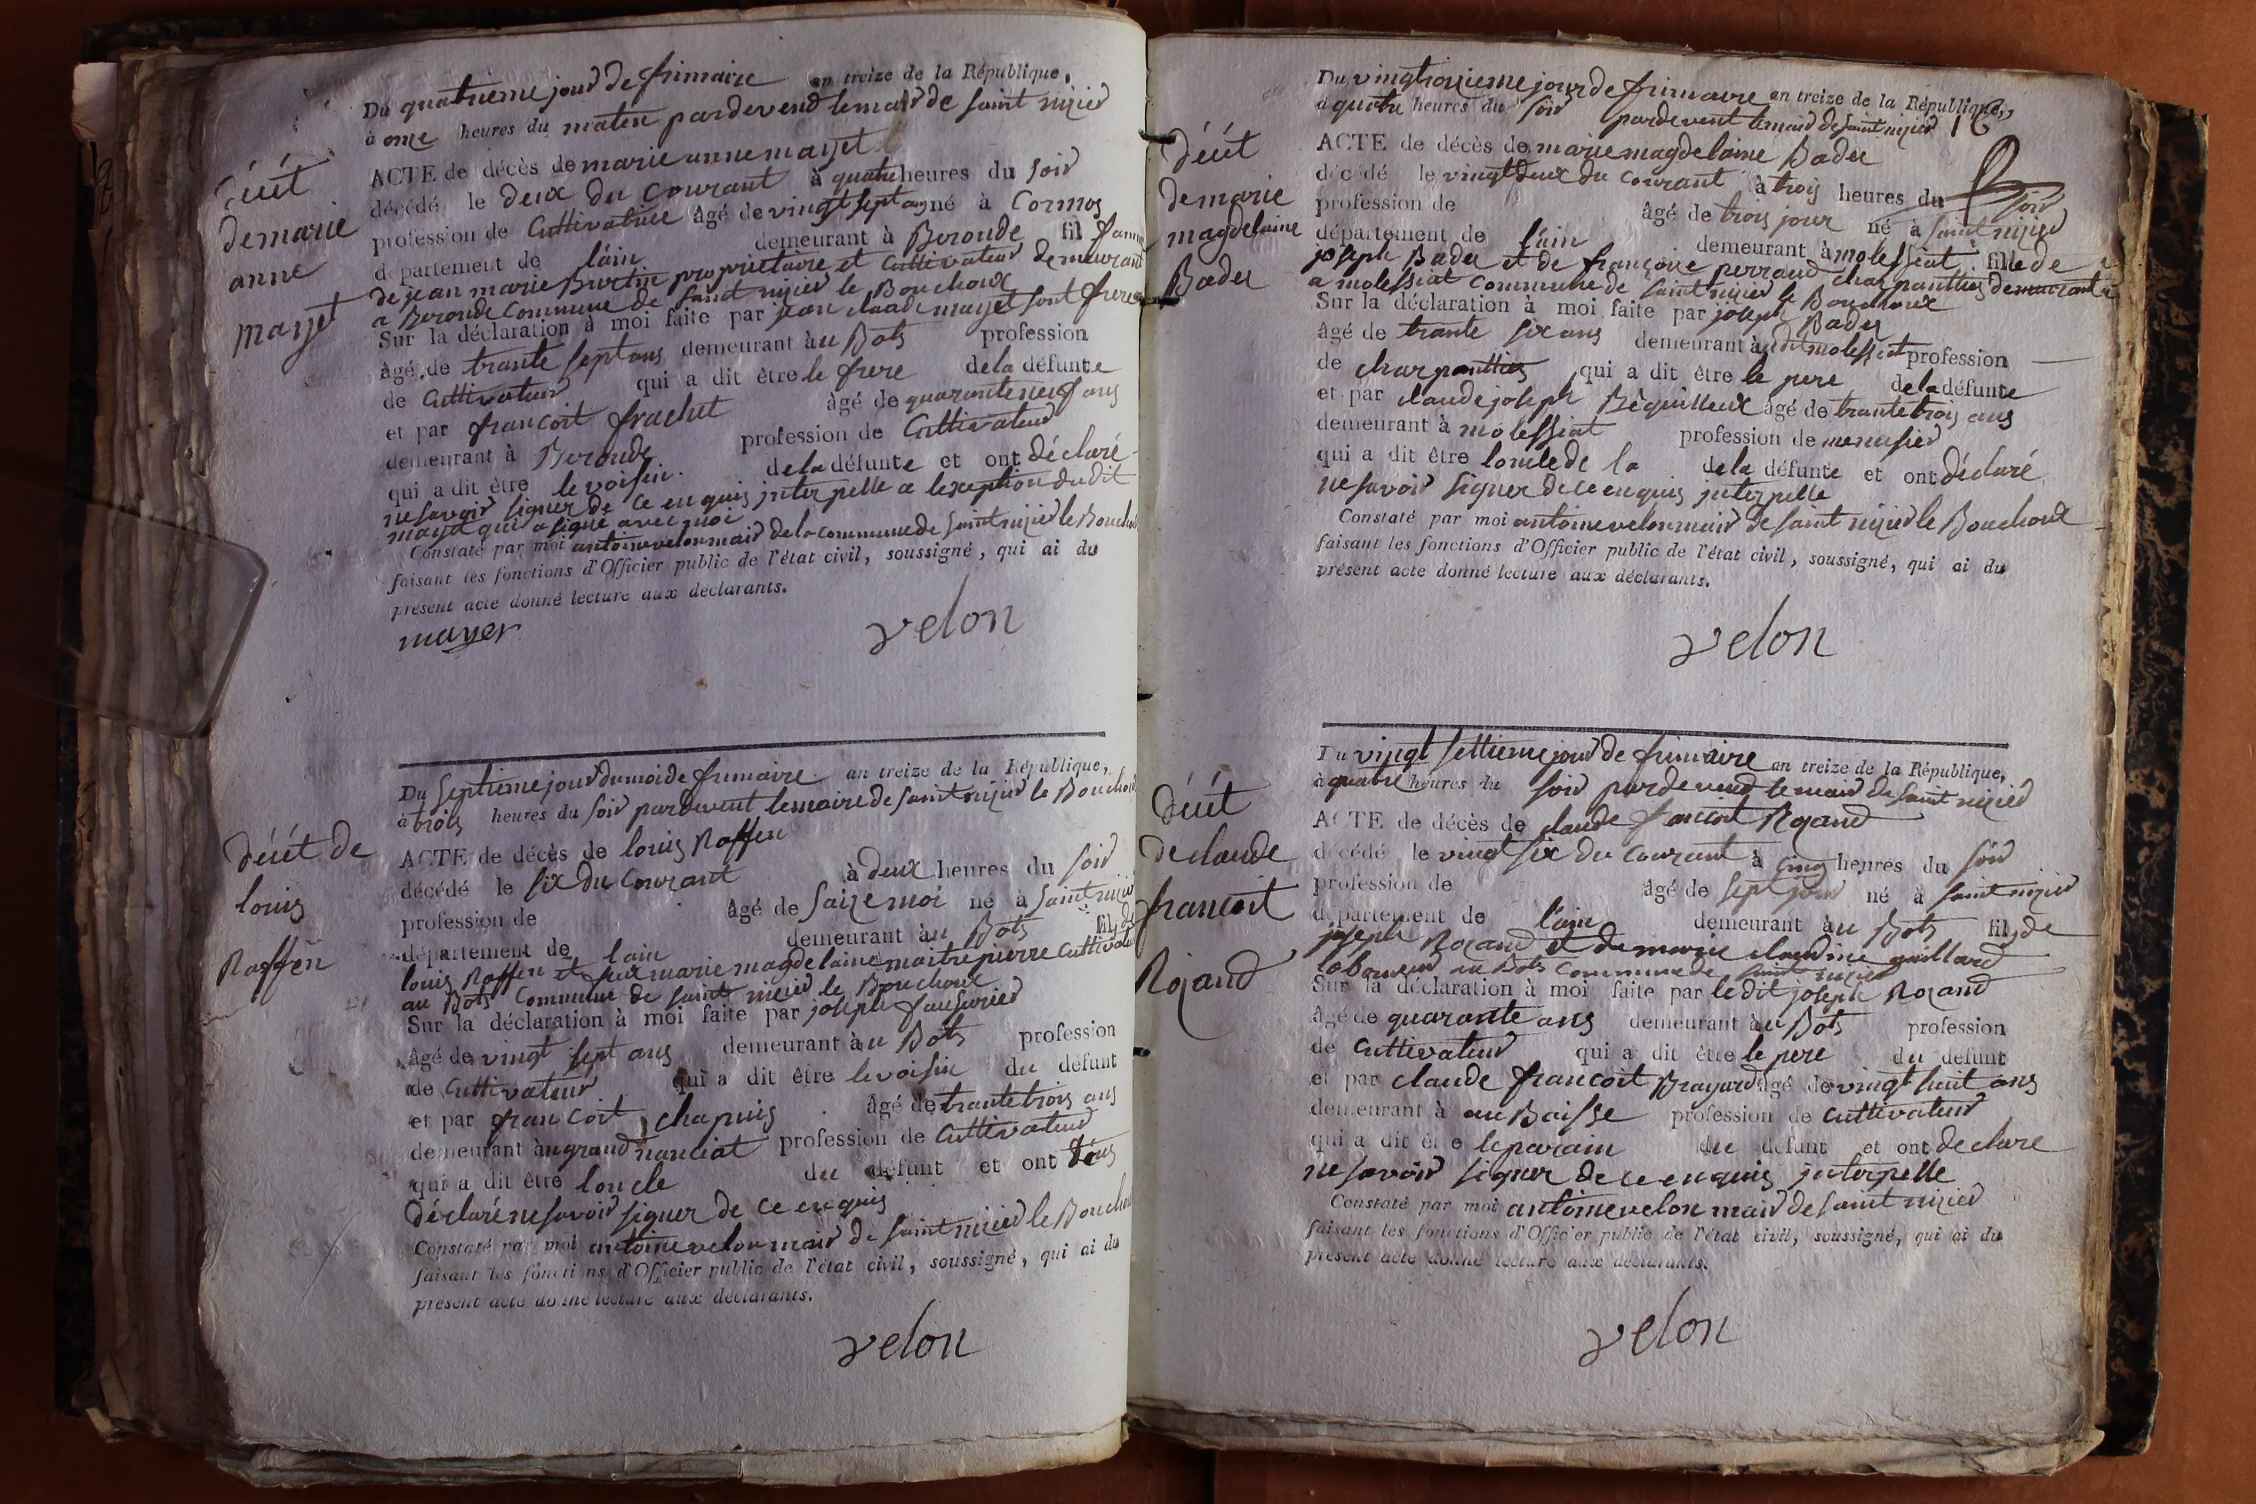 Décét
de marie
anne
mayet
Du quatrieme jour de frimaire an treize de la République,
à onze heures du matin pardevend le mair de saint nizier
ACTE de décès de marie anne mayet
décédé le deux du courant à quatre heures du soir
profession de Cultivatrice âgé de vingt sept ans né à Cormoz
département de l'ain demeurant à Beronde fil fame
de jean marie Burtin propriétaire et Cultivateur demeurant
a Beronde Commune de saint nizier le Bouchoux
Sur la déclaration à moi faite par jean claude mayet sont frere
âgé de trante sept ans demeurant àu Bots profession
de Cultivateur qui a dit être le frere dela défunte
et par francoit frachet âgé de quarante neuf ans
demeurant à Beronde profession de Cultivateur
qui a dit être le voisin dela défunte et ont déclaré
ne savoir signer de ce enquis interpelle a lexception dudit
mayet qui a signé avec moi
Constaté par moi antoine velon mair de la commune de saint nizier le Bouchoux
faisant les fonctions d'Officier public de l'état civil, soussigné, qui ai du
présent acte donné lecture aux déclarants.
mayer velon
Décét de
louis
Raffen
Du Septieme jour du moi de frimaire an treize de la République,
à trois heures du soir pardevent le maire de saint nizier le Bouchoux
ACTE de décès de louis Raffen
décédé le six du Courant à deux heures du soir
profession de âgé de saize moi né à saint nizier
département de lain demeurant àu Bots fils de
louis Raffen et feux marie magdelaine maitrepierre Cultivateur
au Bots Commune de saint nizier le Bouchoux
Sur la déclaration à moi faite par joseph
âgé de vingt sept ans demeurant àu Bots profession
de Cultivateur qui a dit être le voisin du défunt
et par francoit chapuis âgé de trante trois ans
demeurant àu grand nanciat profession de Cultivateur
qui a dit être loncle du défunt et ont tous
déclaré ne savoir signer de ce enquis
Constaté par moi antoine velon mair de saint nizier le Bouchoux
faisant les fonctions d'Officier public de l'état civil, soussigné, qui ai du
présent acte donné lecture aux déclarants.
velon
Décét
de marie
magdelaine
Bader
Du vingtroizieme jour de frimaire an treize de la République,
à quatre heures du soir pardevent le mair de saint nizier
ACTE de décès de marie magdelaine Bader
décédé le vingt deux du Courant à trois heures du soir
profession de âgé de trois jour né à saint nizier
département de l'ain demeurant à molessiat fille de
joseph Bader et de françoise perraud charpantties demeurant
a molessiat Commune de saint nizier le Bouchoux
Sur la déclaration à moi faite par joseph Bader
âgé de trante six ans demeurant àudit molessiat profession
de charpantties qui a dit être le pere dela défunte
et par claude joseph Bèquilleux âgé de trante trois ans
demeurant à molessiat profession de menusier
qui a dit être loncle de la dela défunte et ont déclaré
ne savoir signer de ce enquis interpelle
Constaté par moi antoine velon mair de saint nizier le Bouchoux
faisant les fonctions d'Officier public de l'état civil, soussigné, qui ai du
présent acte donné lecture aux déclarants.
velon
Décét
de claude
francoit
Rozand
Du vingt settieme jour de frimaire an treize de la République,
à quatre heures du soir pardevend le mair de saint nizier
ACTE de décès de claude francoit Rozand
décédé le vingt six du Courant à cinq heures du soir
profession de âgé de sept jour né à saint nizier
département de l'ain demeurant àu Bots fils de
joseph Rozand et de marie claudine gaillard
laboureur au Bots Commune de saint nizier
Sur la déclaration à moi faite par le dit joseph Rozand
âgé de quarante ans demeurant àu Bots profession
de Cultivateur qui a dit être le pere du défunt
et par claude francoit Brayard âgé de vingt huit ans
demeurant à au Baisse profession de Cultivateur
qui a dit être le parain du défunt et ont declare
ne savoir signer de ce enquis interpelle
Constaté par moi antoine velon mair de saint nizier
faisant les fonctions d'Officier public de l'état civil, soussigné, qui ai du
présent acte donné lecture aux déclarants.
velon